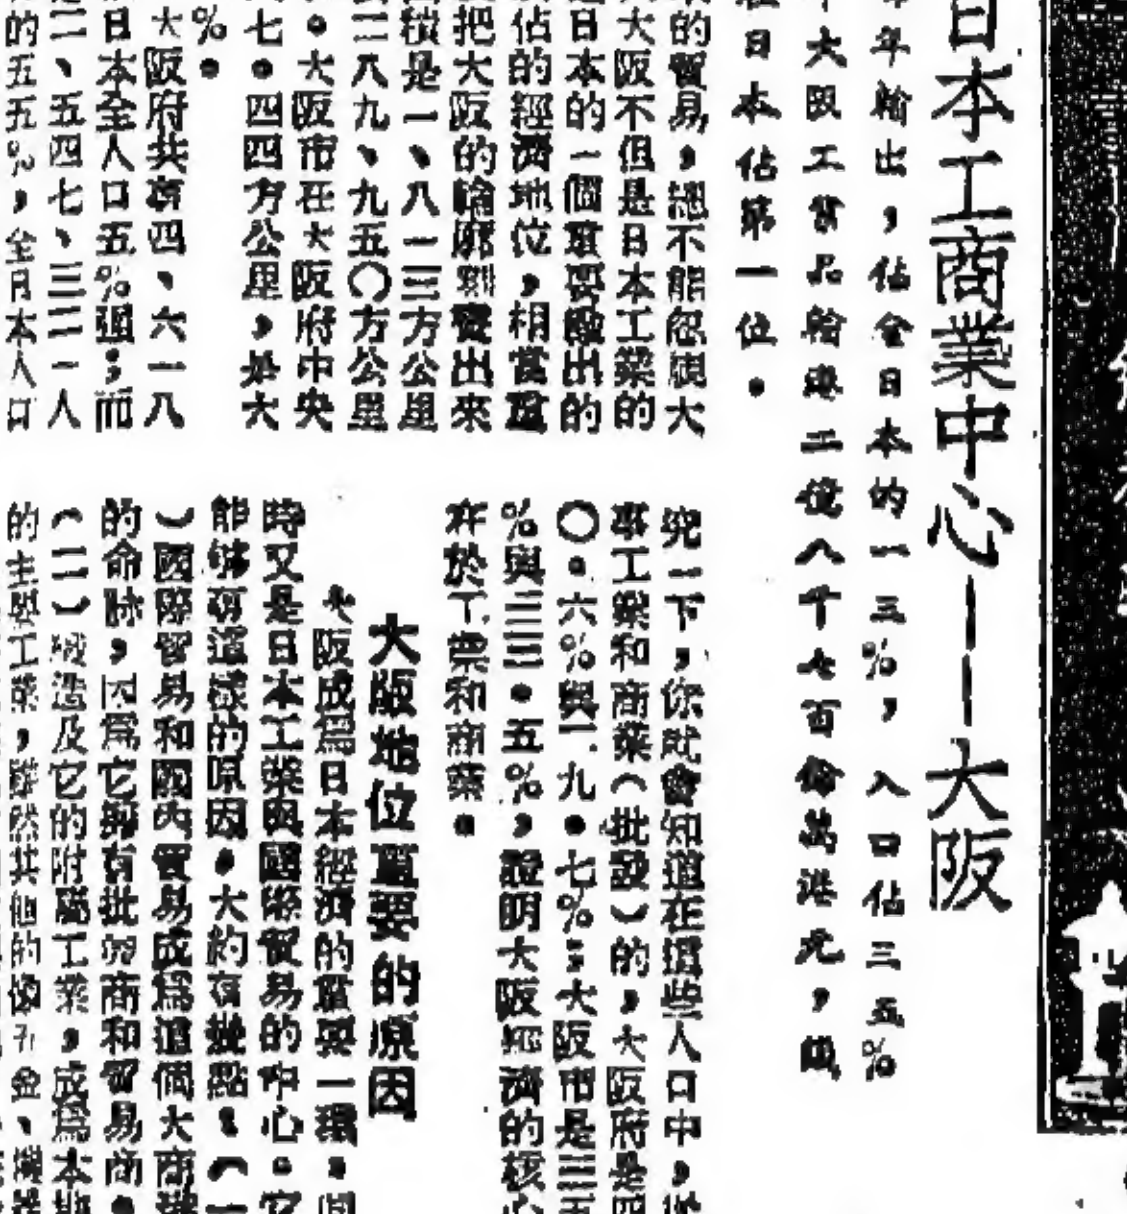 日本工商業中心——大阪
年輸出，佔全日本的一三%，入口佔三五%
大阪工業品輸港二億八千七百餘萬港元，
日本佔第一位。
的貿易，總不能忽視大
大阪不但是日本工業的
日本的一個重要輸出的
佔的經濟地位，相當重
把大阪的輪廓刻變出來
積是一、八一三方公里
二八九、九五〇方公里
。大阪市在大阪府中央
七。四四方公里，是大
%。
大阪府共有四、六一八
日本全人口五%強；而
二、五四七、三二一人
的五五%，全日本人口
究一下，你就會知道在這些人口中，從
事工業和商業（批發）的，大阪府是四
〇。六%與一九。七%；大阪市是三五
%與三三。五%，證明大阪經濟的核心
在於工業和商業。
大阪地位重要的原因
大阪成爲日本經濟的重要一環。同
時又是日本工業與國際貿易的中心。它
能够有這樣的原因，大約有幾點：（一
）國際貿易和國內貿易成爲這個大商業
的命脉，因爲它夠有批發商和貿易商。
（二）製造及它的附屬工業，成爲本地
的主與工業，雖然其他的像五金、機器